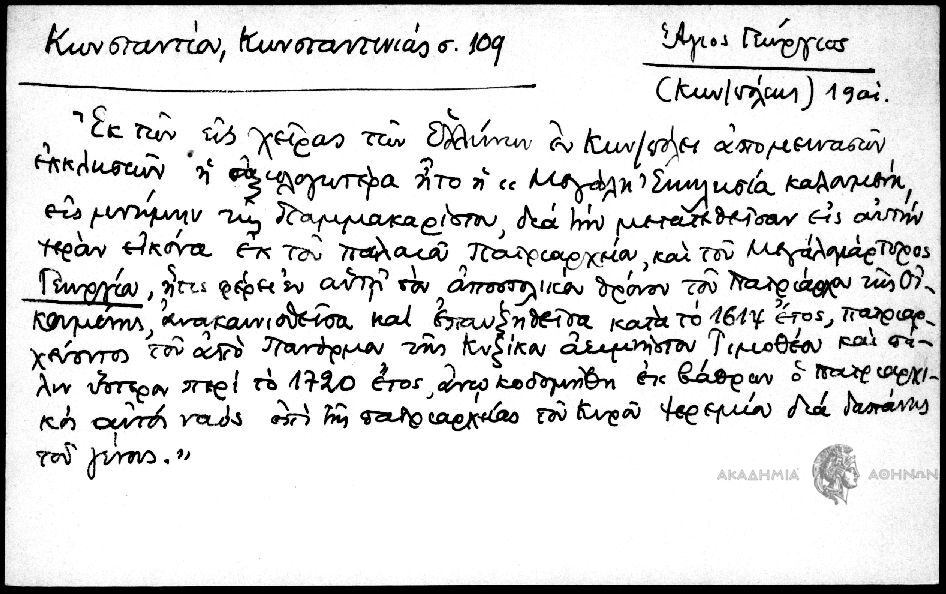 Κωνσταντίου, Κωνσταντινιάς σ. 109
Ἅγιος Γεώργιος
(Κων/πόλεως) 19 αἰ.
"Ἐκ τῶν εἰς χεῖρας τῶν Ἑλλήνων ἐν Κων/πόλει ἀπομεινασῶν
ἐκκλησιῶν ἡ ἀξιολογωτέρα ἦτο ἡ "Μεγάλη Ἐκκλησία καλουμένη,
εἰς μνήμην τῆς Παμμακαρίστου, διά τήν μετατεθεῖσαν εἰς αὐτήν
ἱεράν εἰκόνα ἐκ τοῦ παλαιοῦ Πατριαρχείου, καί τοῦ Μεγαλομάρτυρος
Γεωργίου, ἥτις φέρει ἐν αὐτῇ τόν ἀποστολικόν θρόνον τοῦ Πατριάρχου τῆς Οἰ-
κουμένης, ἀνακαινισθεῖσα καί ἐπαυξηθεῖσα κατά τό 1614 ἔτος, πατριαρ-
χεύοντος τοῦ ἀπό Πανόρμου τῆς Κυζίκου ἀειμνήστου Τιμοθέου καί πά-
λιν ὕστερον περί τό 1720 ἔτος, ἀνῳκοδομήθη ἐκ βάθρων ὁ πατριαρχι-
κός αὐτός ναός ἐπί τῆς πατριαρχείας τοῦ Κυροῦ Ἱερεμίου διά δαπάνης
τοῦ γένους."
ΑΚΑΔΗΜΙΑ ΑΘΗΝΩΝ